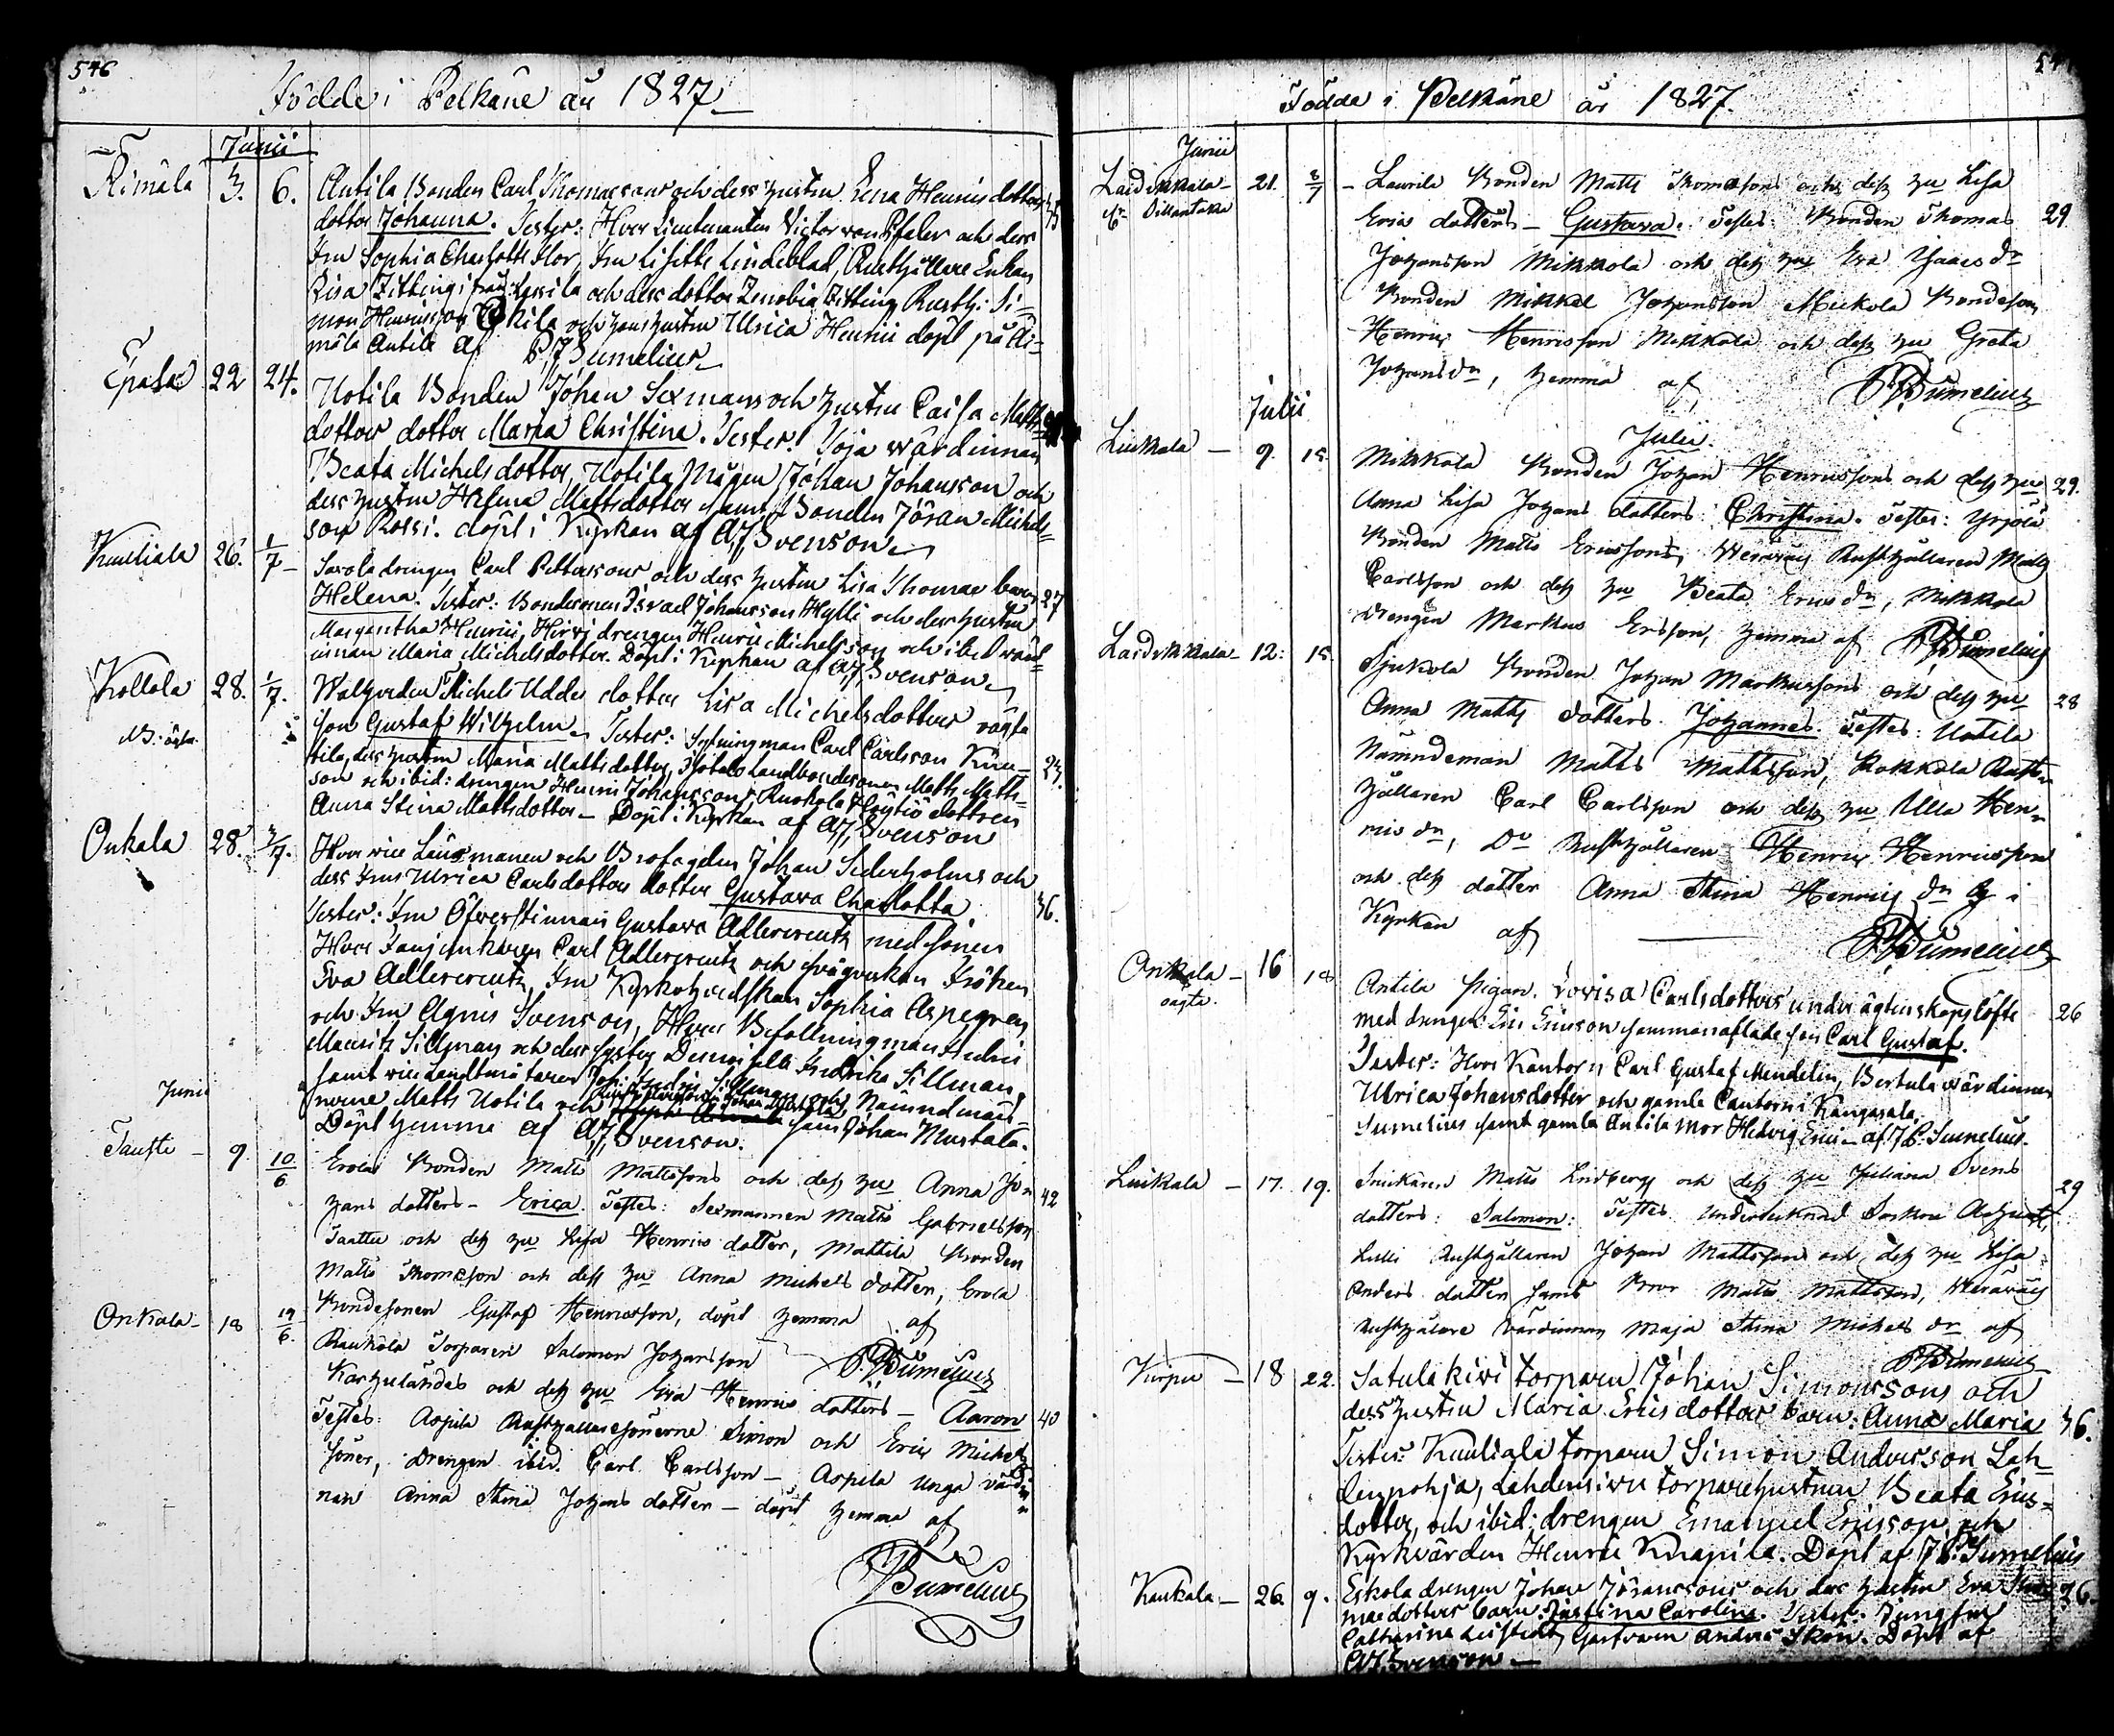 546
Födde i Pelkäne år 1827
Junii
Äimälä 3. 6. Antila Bonden Carl Thomaesons och dess hustru Lena Henrics dotters
dotter Johanna. Testes: Herr Lieutenanten Victor von Pfaler och dess
Fru Sophia Charlotte Flor, Fru Lisette Lindeblad, Rusthållare Enkan
Lisa Zitting och dess dotter Zenobia Zitting Rusth: Si=
mon Henricsson och hans hustru Ulrica Henrici döpt på Äi=
mälä Antila af P.J. Sumelius
Epala 22 24. Uotila Bonden Johan Sexmans och hustru Caisa Matts
dotters dotter Maria Christina. Testes: Soja wärdinnan
Beata Michelsdotter, Uotila Mågen Johan Johansson och
dess hustru Helena Mattsdotter samt Bonden Jöran Michels=
son Rossi. döpt i Kyrkan af A.J. Svenson
Kuuliala 26. 1/7 Savola drengen Carl Petterssons och dess hustru Lisa Thomae barn 27
Helena. Testes: Bondesonen Israel Johansson Hylli och dess hustru
Margaretha Henrici, Hirvi drengen Henric Michelsson och ibid wärd=
innan Maria Michelsdotter. Döpt i Kyrkan af A.J. Svenson
Kollola 28. 1/7. Michels Udde dotter Lisa Michelsdotters oägta
NB: ägta. son Gustaf Wilhelm. Testes: Sytningman Carl Carlsson Knu=
tila, dess hustru Maria Mattsdotter, Landbondesonen Matts Matts= 24.
son och ibid: drengen Henric Johansson, Ruokola dottren
Anna Stina Mattsdotter — Döpt i Kyrkan af A.J. Svenson
Onkala 28. 3/7. Herr vice Länsmanen och Brofogden Johan Sederholms och
dess Frus Ulrica Carlsdotters dotter Gustava Charlotta. 36.
Testes: Fru Öfwerstinnan Gustava Adlercreutz med sonen
Herr Fanjunkaren Carl Adlercreutz och Fröken
Eva Adlercreutz, Fru Kyrkoherdskan Sophia Aspegren
och Fru Agnis Svenson, Herr Befallningman
Mauritz Sillman och dess syster Demoiselle Fredrika Sillman,
samt vice Landtmätaren Nämndemän=
nerne Matts Uotila och samt Johan Mustala.
Döpt hemma af A.J. Svenson.
Junii
Tauste — 9 10/6 Erola Bonden Matts Mattssons och dess hu Anna Jo= 42
hans dotters — Erica. Testes: Sexmannen Matts Gabrielsson
och dess hu Lisa Henrics dotter, Mattila Bonden
Matts Thomasson och dess hu Anna Michels dotter, Erola
Bondesonen Gustaf Henricsson, döpt hemma af
P. J. Sumelius
Onkala — 18 19/6. Raukola Torparen Salomon Johansson
och dess hu Eva Henrics dotters — Aaron 40
Testes: Aspila Rusthållaresönerne Simon och Eric Michels
söner, drengen ibid. Carl Carlsson — Aspila unga värdin
nan Anna Stina Johans dotter — döpt hemma af
P J Sumelius
Födde i Pelkäne år 1827.
Junii
Laidikkala — 21. 8/7 — Laurila Bonden Matts Thomassons och dess hu Lisa
Erics dotters — Gustava. Testes: Bonden Thomas 29
Johansson Mikkola och dess hu Eva Isaacs dr
Bonden Mikkel Johansson Mickola Bondeson
Henric Henricsson Mikkola och dess hu Greta
Johans dr, hemma af P J Sumelius
Julii
Julii.
Luikala — 9. 15. Mikkola Bonden Johan Henricssons och dess hu 29.
Anna Lisa Johans dotters: Christina. Testes: Yrjölä
Bonden Matts Ericsson, Rusthållaren Matts
Carlsson och dess hu Beata Erics dr, Mikkola
drengen Markus Ersson, hemma af P J Sumelius
Laidikkala — 12. 15. Bonden Johan Markussons och dess hu 28
Anna Matts dotters. Johannes. Testes: Uotila
Nämndeman Matts Mattsson, Rokkola Rust=
hållaren Carl Carlsson och dess hu Ulla Hen=
rics dr, Do Rusthållaren Henric Henricsson
och dess dotter Anna Stina Henrics dr i
Kyrkan af — P J Sumelius
Onkala — 16 18 Antila pigan Lovisa Carlsdotters under ägtenskapslöfte 26
oägta. med drengen Eric Ericson sammanaflade son Carl Gustaf.
Testes: Herr Kantorn Carl Gustaf Mendelin, Bertula wärdinnan
Ulrica Johansdotter och gamla Cantorn i Kangasala
Sumelius samt gamla Antila Mor Hedvig Erici — af J.P. Sumelius.
Luikala — 17. 19. Snickaren Matts Lindberg och dess hu Juliana Svens 29
dotters: Salomon: Testes
Rusthållaren Johan Mattsson och dess hu Lisa
Anders dotter samt Matts Mattsson,
Rusthållare Värdinnan Maja Stina Michels dr af
P J Sumelius
Kirpu — 18 22. Satulakivi torparen Johan Simonssons och
dess hustru Maria Ericsdotters barn: Anna Maria 36.
Testes: Kuuliala torparen Simon Andersson Lah=
denpohja, Lahdensivu torparehustrun Beata Erics=
dotter, och ibid: drengen Emanuel Ericsson och
Kyrkvärden Henric Knapila. Döpt af J.P. Sumelius
Kaukala — 26. 9. Eskola drengen Johan Jöranssons och dess hustru Eva Tho= 26.
mae dotters barn: Justina Carolina. Testes: Jungfru
Catharina Garfvaren Anders Skön. Döpt af
A.J. Svenson —